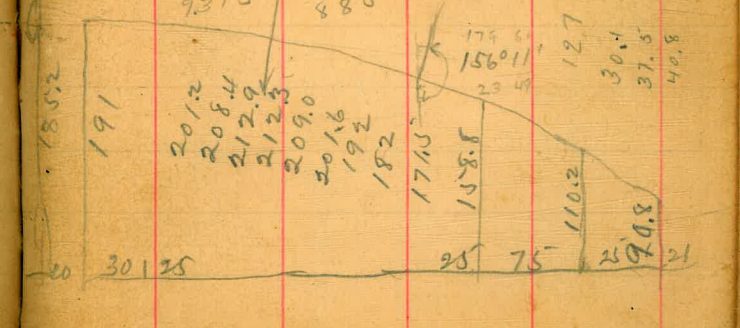 179
156°11'
23 49
127
30.4
37.5
40.8
185.2
191
201.2
208.4
212.9
212.3
209.0
201.6
192
182
171.5
158.8
110.2
90.8
20 30 25 25 75 25 21